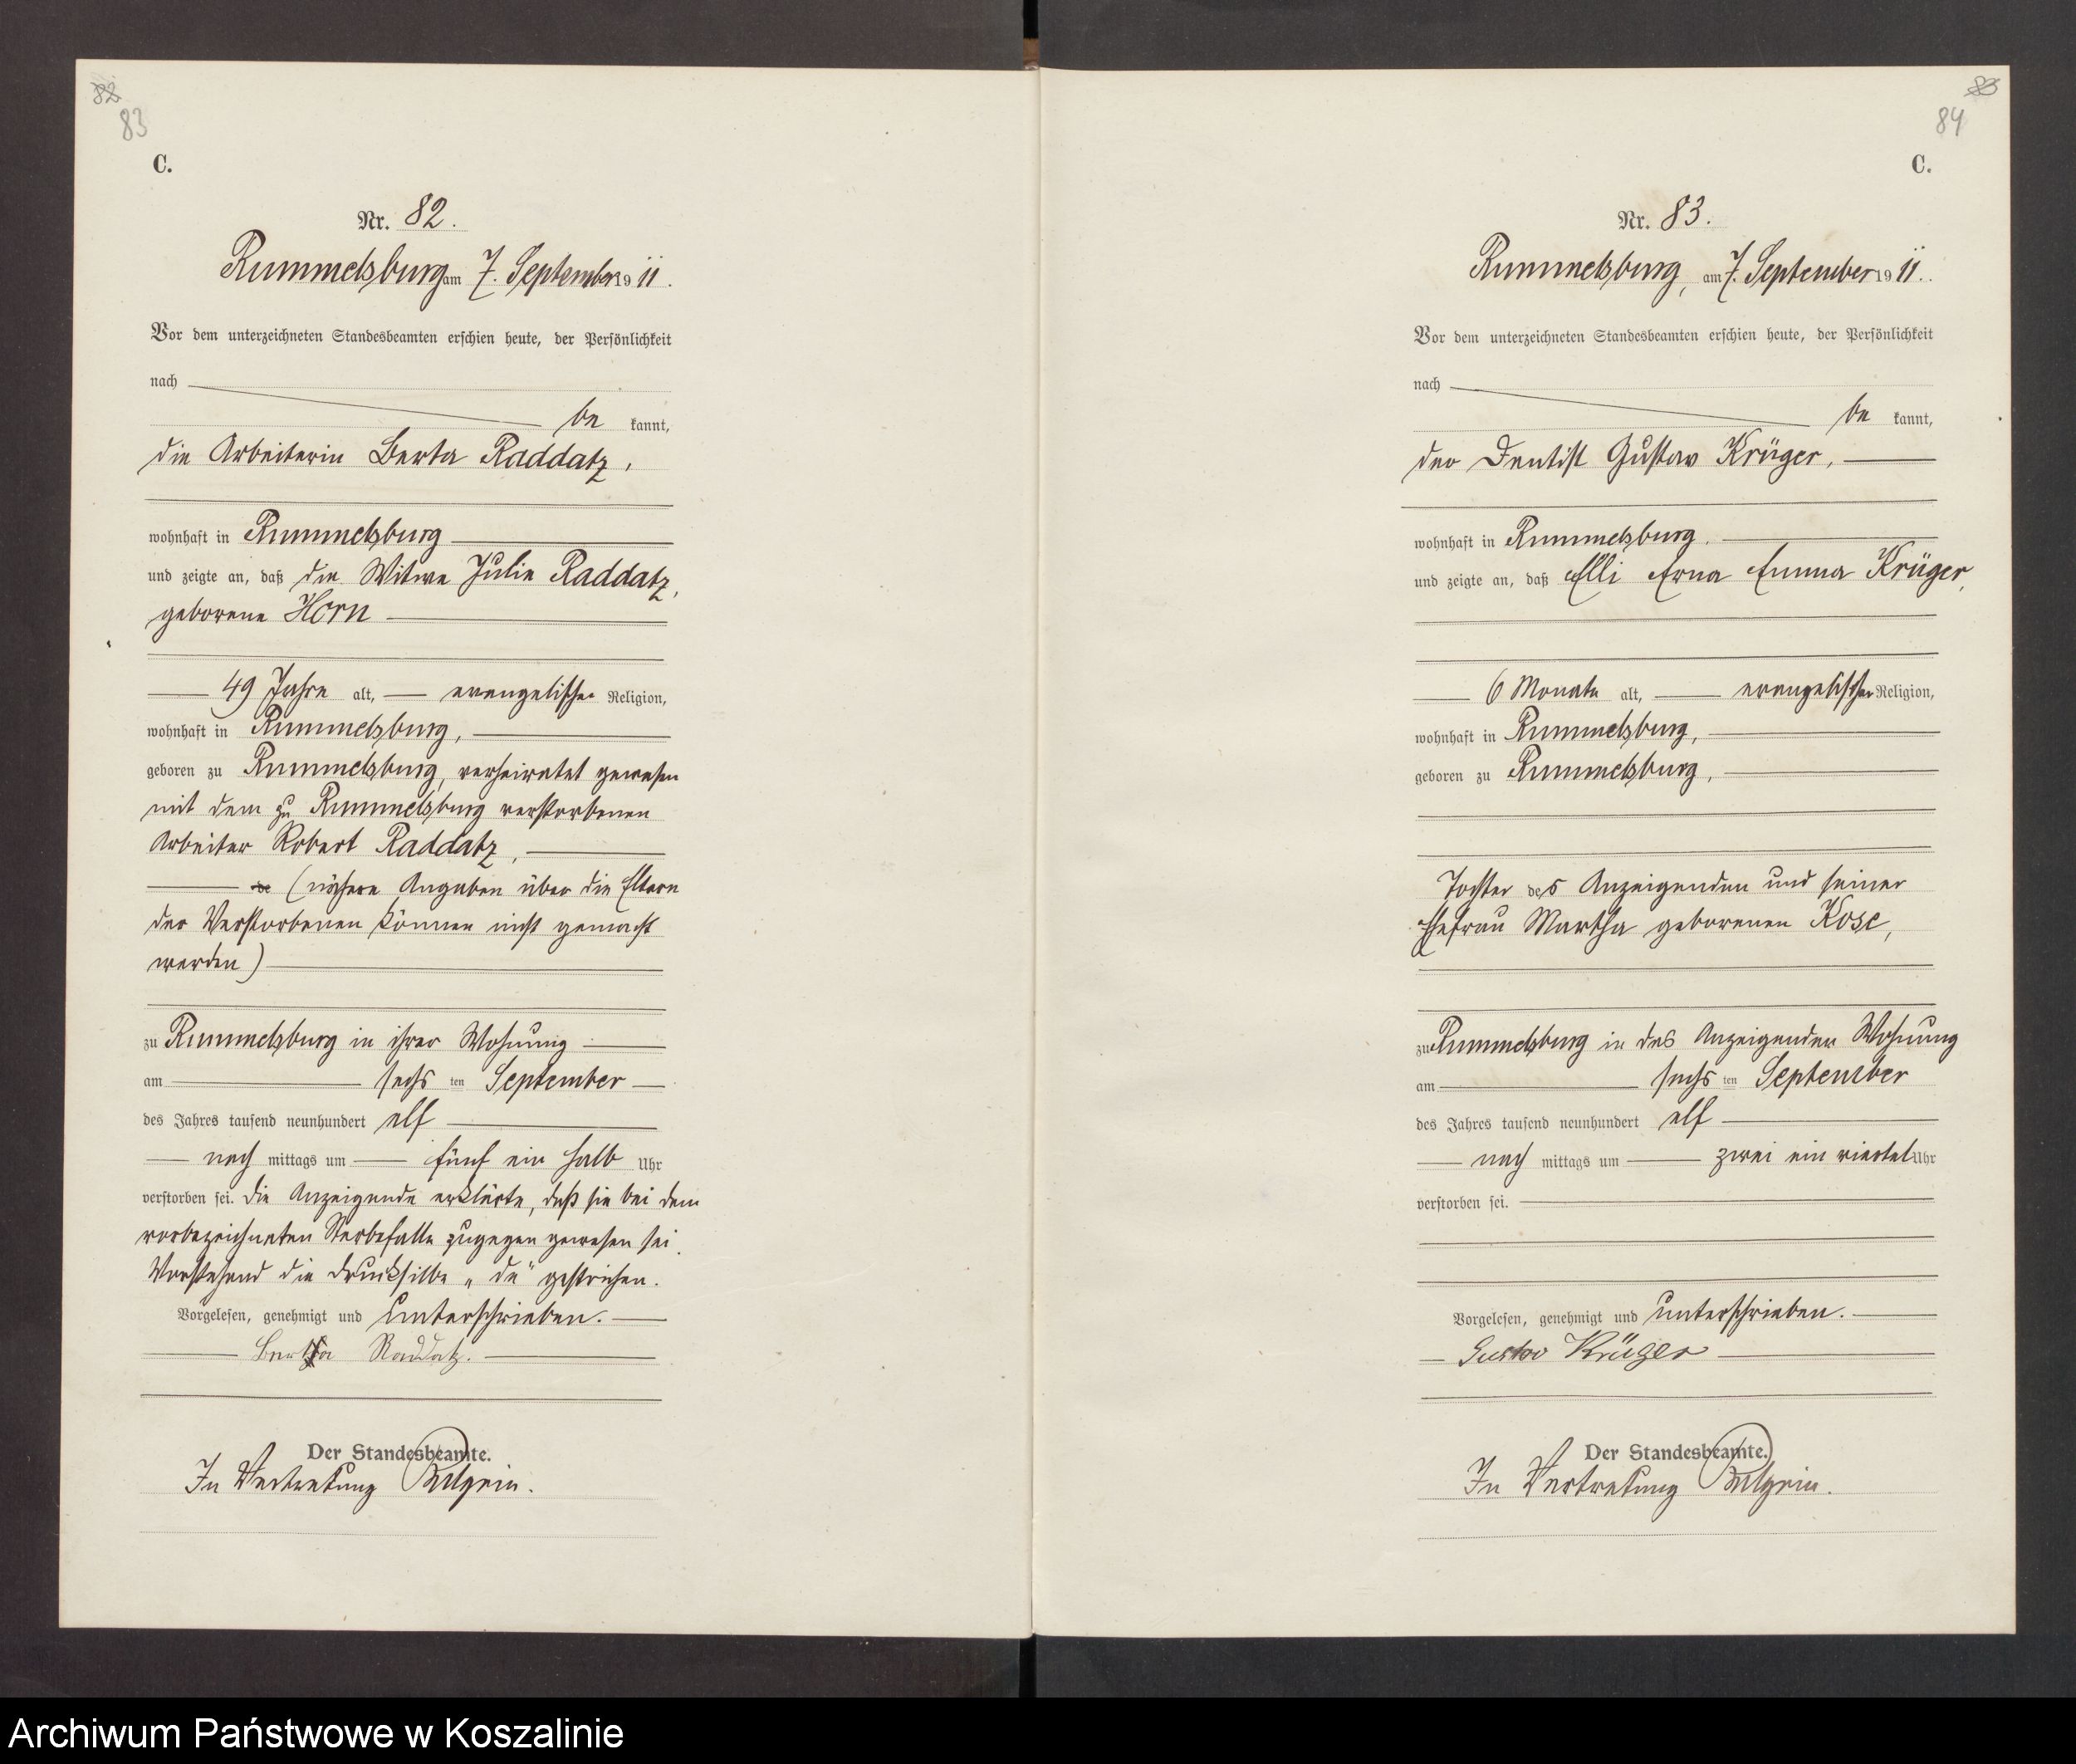 82
83
C.
Nr. 82.
Rummelsburg am 7. September 1911.
Vor dem unterzeichneten Standesbeamten erschien heute, der Persönlichkeit
nach
be kannt,
die Arbeiterin Berta Raddatz,
wohnhaft in Rummelsburg
und zeigte an, daß die Witwe Julie Raddatz,
geborene Horn
49 Jahre alt, evangelischer Religion,
wohnhaft in Rummelsburg,
geboren zu Rummelsburg, verheiratet gewesen
mit dem zu Rummelsburg verstorbenen
Arbeiter Robert Raddatz,
de (nähere Angaben über die Eltern
der Verstorbenen können nicht gemacht
werden)
zu Rummelsburg in ihrer Wohnung
am sechs ten September
des Jahres tausend neunhundert elf
nach mittags um fünf ein halb Uhr
verstorben sei. Die Anzeigende erklärte, daß sie bei dem
vorbezeichneten Sterbefalle zugegen gewesen sei.
Vorstehend die Drucksilbe „de“ gestrichen.
Vorgelesen, genehmigt und unterschrieben.
Berta Raddatz.
Der Standesbeamte.
In Vertretung
83
84
C.
Nr. 83.
Rummelsburg, am 7. September 1911.
Vor dem unterzeichneten Standesbeamten erschien heute, der Persönlichkeit
nach
be kannt,
der Dentist Gustav Krüger,
wohnhaft in Rummelsburg.
und zeigte an, daß Elli Erna Emma Krüger,
6 Monate alt, evangelischer Religion,
wohnhaft in Rummelsburg,
geboren zu Rummelsburg,
Tochter des Anzeigenden und seiner
Ehefrau Martha geborenen Kose,
zu Rummelsburg in des Anzeigenden Wohnung
am sechs ten September
des Jahres tausend neunhundert elf
nach mittags um zwei ein viertel Uhr
verstorben sei.
Vorgelesen, genehmigt und unterschrieben.
Gustav Krüger
Der Standesbeamte.
In Vertretung
Archiwum Państwowe w Koszalinie